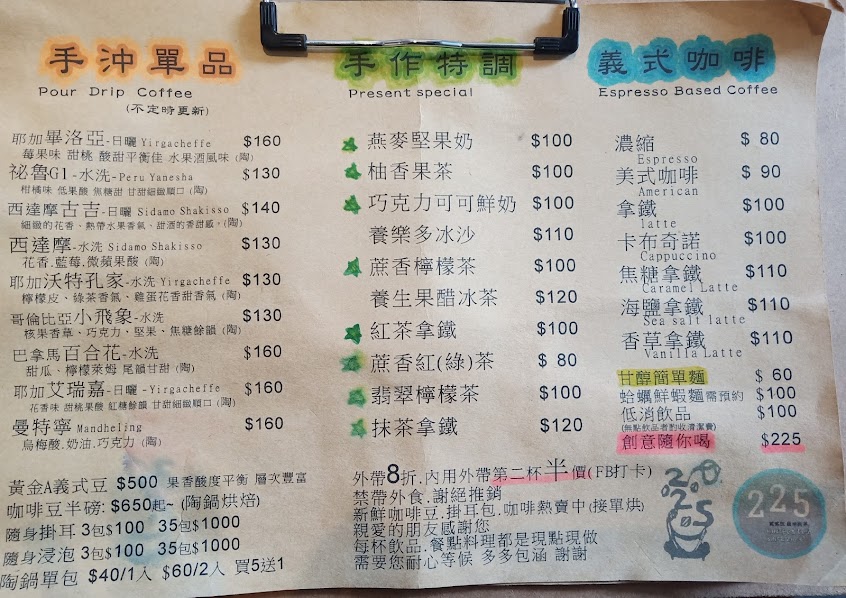 手沖單品
Pour Drip Coffee
(不定時更新)
耶加畢洛亞-日曬 Yirgacheffe $160
莓果味 甜桃 酸甜平衡佳 水果酒風味 (陶)
祕魯G1-水洗-Peru Yanesha $130
柑橘味 低果酸 焦糖甜 甘甜細緻順口 (陶)
西達摩古吉-日曬 Sidamo Shakisso $140
細緻的花香、熱帶水果香氣、甜酒的香甜感。(陶)
西達摩-水洗 Sidamo Shakisso $130
花香.藍莓.微蘋果酸 (陶)
耶加沃特孔家-水洗 Yirgacheffe $130
檸檬皮、綠茶香氣、雞蛋花香甜香氣 (陶)
哥倫比亞小飛象-水洗 $130
核果香華、巧克力、堅果、焦糖餘韻 (陶)
巴拿馬百合花-水洗 $160
甜瓜、檸檬萊姆 尾韻甘甜 (陶)
耶加艾瑞嘉-日曬-Yirgacheffe $160
花香味 甜桃果酸 紅糖餘韻 甘甜細緻順口 (陶)
曼特寧 Mandheling $160
烏梅酸.奶油.巧克力 (陶)
黃金A義式豆 $500 果香酸度平衡 層次豐富
咖啡豆半磅: $650起~ (陶鍋烘焙)
隨身掛耳 3包$100 35包$1000
隨身浸泡 3包$100 35包$1000
陶鍋單包 $40/1入 $60/2入 買5送1
手作特調
Present special
燕麥堅果奶 $100
柚香果茶 $100
巧克力可可鮮奶 $100
養樂多冰沙 $110
蔗香檸檬茶 $100
養生果醋冰茶 $120
紅茶拿鐵 $100
蔗香紅(綠)茶 $ 80
翡翠檸檬茶 $100
抹茶拿鐵 $120
義式咖啡
Espresso Based Coffee
濃縮 $ 80
Espresso
美式咖啡 $ 90
American
拿鐵 $100
latte
卡布奇諾 $100
Cappuccino
焦糖拿鐵 $110
Caramel Latte
海鹽拿鐵 $110
Sea salt latte
香草拿鐵 $110
Vanilla Latte
甘醇簡單麵 $ 60
蛤蠣鮮蝦麵需預約 $100
低消飲品 $100
(無點飲品者酌收清潔費)
創意隨你喝 $225
外帶8折.內用外帶第二杯半價(FB打卡)
禁帶外食.謝絕推銷
新鮮咖啡豆.掛耳包.咖啡熱賣中(接單烘)
親愛的朋友感謝您
每杯飲品.餐點料理都是現點現做
需要您耐心等候 多多包涵 謝謝
225